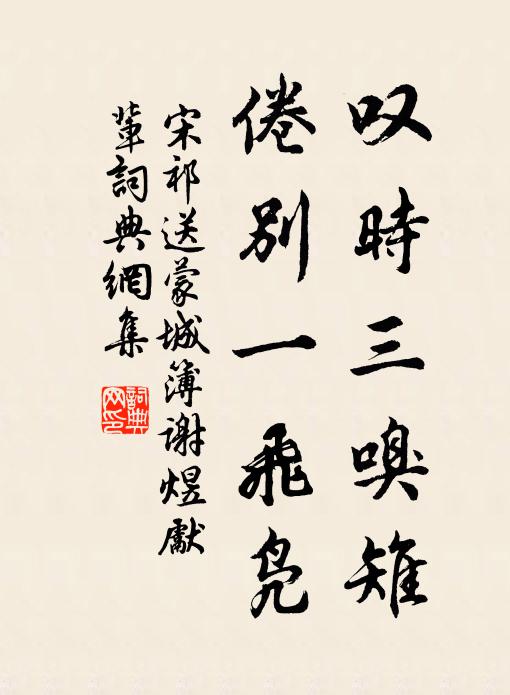 叹時三嗅雉
倦別一飛鳧
宋祁送蒙城簿謝煜獻
輩詞典網集
詞典网印